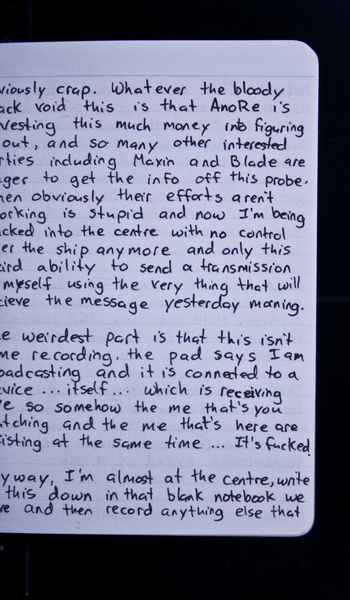 viously crap. Whatever the bloody
ack void this is that AnoRe is
vesting this much money into figuring
out, and so many other interested
rties including Maxin and Blade are
ger to get the info off this probe.
hen obviously their efforts aren't
orking is stupid and now I'm being
cked into the centre with no control
er the ship anymore and only this
ird ability to send a transmission
myself using the very thing that will
cieve the message yesterday morning.
e weirdest part is that this isn't
me recording. the pad says I am
oadcasting and it is connected to a
vice ... itself ... which is receiving
ve so somehow the me that's you
atching and the me that's here are
isting at the same time ... It's fucked.
yway, I'm almost at the centre, write
this down in that blank notebook we
ve and then record anything else that